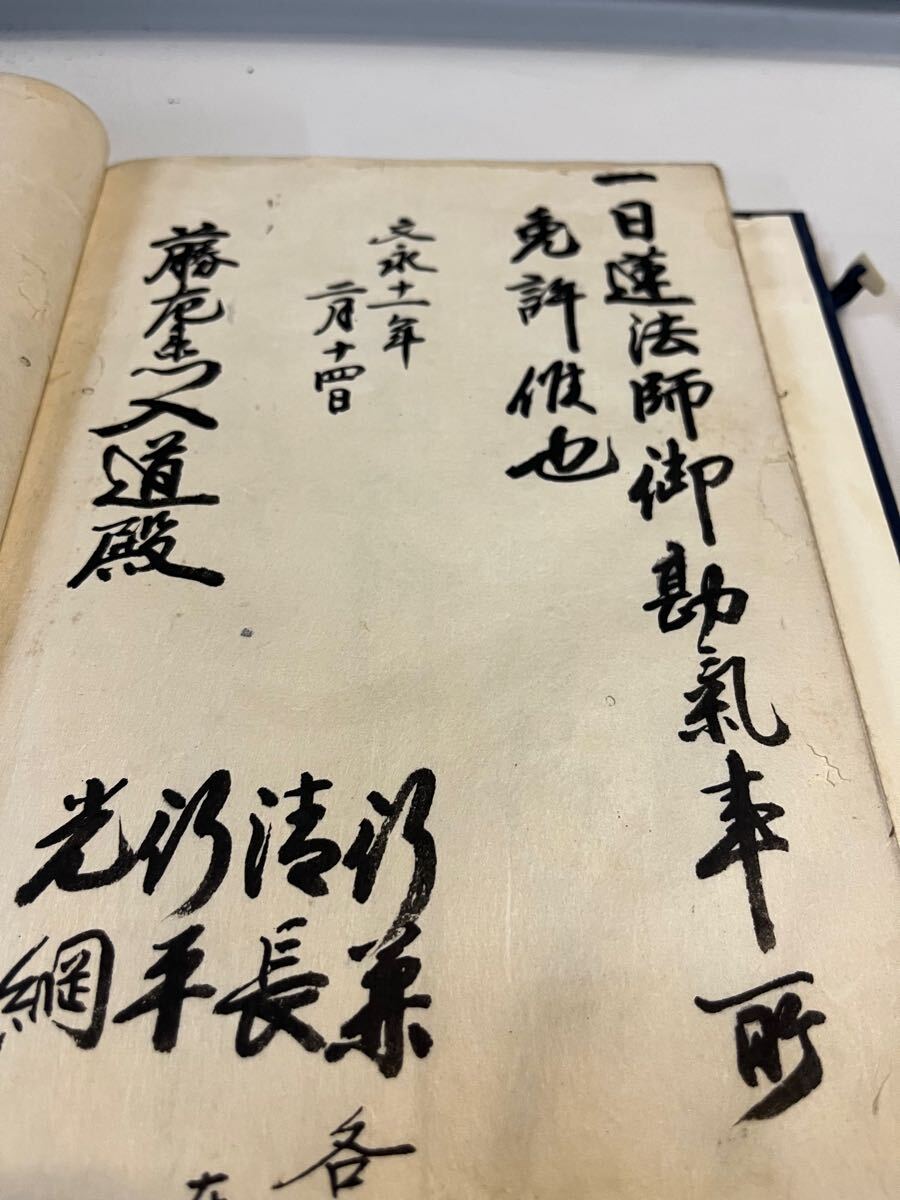 一日蓮法師御勘氣事所
免許候也
文永十一年
二月十四日
藤入道殿
行兼
清長
行平
光綱
各
在